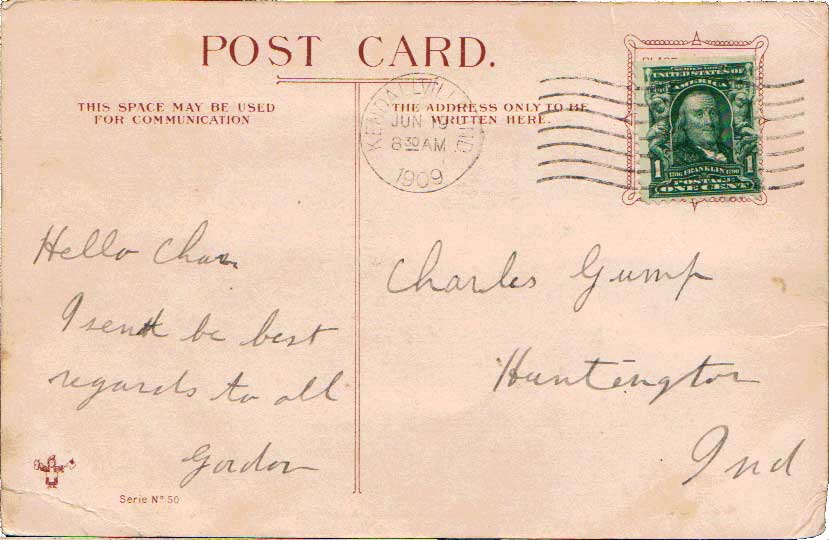 POST CARD.
THIS SPACE MAY BE USED
FOR COMMUNICATION
THE ADDRESS ONLY TO BE
WRITTEN HERE.
KENDALLVILLE IND.
JUN 19
8 30 AM
1909
UNITED STATES OF
AMERICA
1 1706 FRANKLIN 1790 1
POSTAGE
ONE CENT
Hello Chas
I send be best
regards to all
Gordon
Charles Gump
Huntington
Ind
Serie No. 50